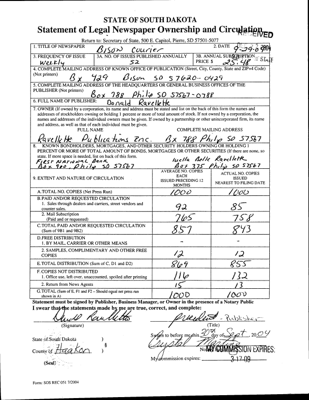 STATE OF SOUTH DAKOTA
Statement of Legal Newspaper Ownership and Circulation
Return to: Secretary of State, 500 E. Capitol, Pierre, SD 57501-5077
1. TITLE OF NEWSPAPER
Bison Courier
2. DATE
3. FREQUENCY OF ISSUE
Weekly
3A. NO. OF ISSUES PUBLISHED ANNUALLY
52
3B. ANNUAL SUBSCRIPTION PRICE $
4. COMPLETE MAILING ADDRESS OF KNOWN OFFICE OF PUBLICATION (Street, City, County, State and ZIP+4 Code)
(Not printers)
Bx 429 Bison SD 57620-0429
5. COMPLETE MAILING ADDRESS OF THE HEADQUARTERS OR GENERAL BUSINESS OFFICES OF THE
PUBLISHER (Not printers)
Box 788 Philip SD 57567-0788
6. FULL NAME OF PUBLISHER:
Donald Ravellette
7. OWNER (If owned by a corporation, its name and address must be stated and
addresses of stockholders owning or holding 1 percent or more of total amount of stock. If not owned by a corporation, the
names and addresses of the individual owners must be given. If owned by a partnership or other unincorporated firm, its name
and address, as well as that of each individual must be given.
FULL NAME
COMPLETE MAILING ADDRESS
Ravellette Publications Inc. Bx 788 Philip SD 57567
8. KNOWN BONDHOLDERS, MORTGAGES, AND OTHER SECURITY HOLDERS OWNING OR HOLDING 1
PERCENT OR MORE OF TOTAL AMOUNT OF BONDS, MORTGAGES OR OTHER SECURITIES (If there are none, so
state. If more space is needed, list on back of this form.
First National Bank
Box 900 Philip SD 57567
Box 375 Philip SD 57567
9. EXTENT AND NATURE OF CIRCULATION
AVERAGE NO. COPIES EACH ISSUED PRECEDING 12 MONTHS
ACTUAL NO. COPIES ISSUED NEAREST TO FILING DATE
A. TOTAL NO. COPIES (Net Press Run)
1000
1000
B. PAID AND/OR REQUESTED CIRCULATION
1. Sales through dealers and carriers, street vendors and counter sales.
92
85
2. Mail Subscription
(Paid and or requested)
765
758
C. TOTAL PAID AND/OR REQUESTED CIRCULATION
(Sum of 9B1 and 9B2)
857
843
D. FREE DISTRIBUTION
1. BY MAIL, CARRIER OR OTHER MEANS
2. SAMPLES, COMPLIMENTARY AND OTHER FREE COPIES
12
12
E. TOTAL DISTRIBUTION (Sum of C, D1 and D2)
869
855
F. COPIES NOT DISTRIBUTED
1. Office use, left over, unaccounted, spoiled after printing
116
132
2. Return from News Agents
15
13
G. TOTAL (Sum of E, F1 and F2 - Should equal net press run shown in A)
1000
1000
Statement must be signed by Publisher, Business Manager, or Owner in the presence of a Notary Public
I swear that the statements made by me are true, correct, and complete:
(Signature)
President - Publisher
(Title)
State of South Dakota )
County of Haakon )
(Seal)
Sworn to before me this 30th day of Sept. 2004
MY COMMISSION EXPIRES:
My commission expires: 3-17-09
Form: SOS REC 051 7/2004